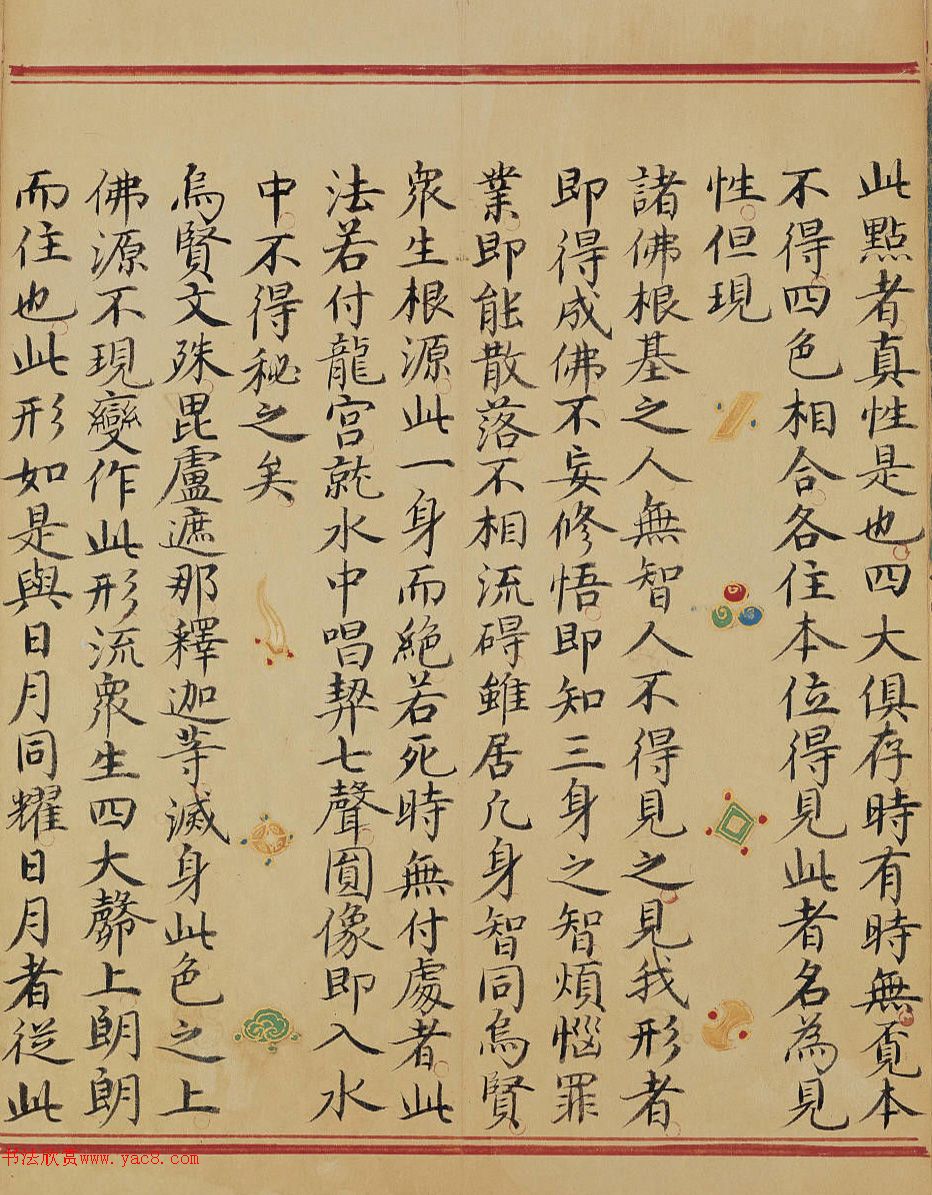 此點者真性是也四大俱存時有時無覔本
不得四色相合各住本位得見此者名為見
性但現
諸佛根基之人無智人不得見之見我形者
即得成佛不妄修悟即知三身之智煩惱罪
業即能散落不相流碍雖居凡身智同烏賢
衆生根源此一身而絶若死時無付處者此
法若付龍宮就水中唱契七聲圓像即入水
中不得秘之矣
烏賢文殊毘盧遮那釋迦等滅身此色之上
佛源不現變作此形流衆生四大臍上朗朗
而住也此形如是與日月同耀日月者從此
书法欣赏www.yac8.com